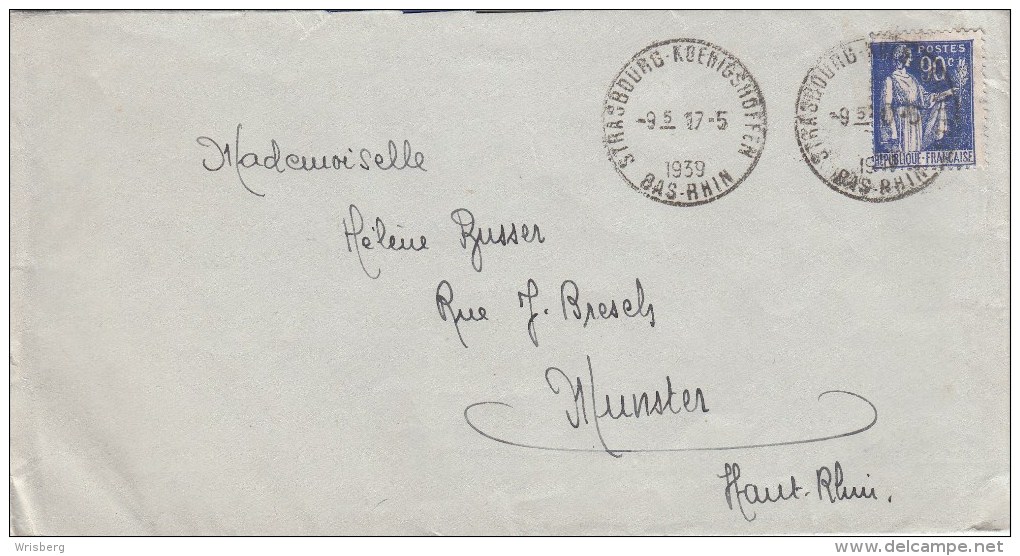 STRASBOURG-KOENIGSHOFFEN
-9 5 17-5
1939
BAS-RHIN
POSTES
90c
REPUBLIQUE-FRANÇAISE
BAS-RHIN
Mademoiselle
Hélène Busser
Rue J. Bresch
Munster
Haut-Rhin.
Wrisberg
www.delcampe.net